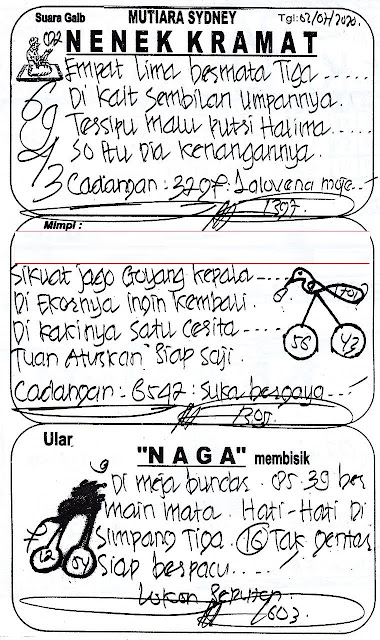 Suara Gaib MUTIARA SYDNEY Tgl: 02/07/2020.
02 NENEK KRAMAT
Empat Lima bermata Tiga .....
Di kait sembilan umpannya.
Tersipu malu putri Halima.....
So Itu Dia kenangannya.
69
4/3
Cadangan : 3297 :
1397
Mimpi :
Sikuat jago Goyang kepala ----
Di Ekornya ingin kembali.
Di kakinya satu cerita ----
Tuan Aturkan Siap saji.
56 43
Cadangan : 6547 : suka bergaya ---
1305
Ular "NAGA" membisik
9
Di meja bundar. 05.39 ber
main mata. Hati-Hati Di
Simpang Tiga. 16 Tak gentar
Siap berpacu....
7
12 04
1603